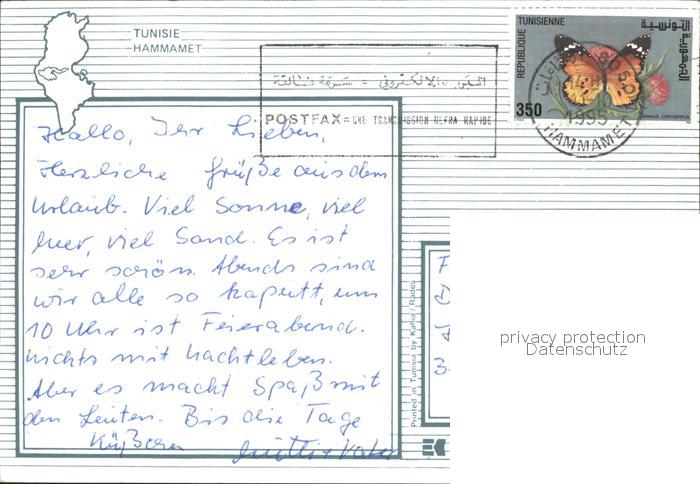 TUNISIE
HAMMAMET
REPUBLIQUE TUNISIENNE
الجمهورية التونسية
350
DANAUS CHRYSIPPUS
1995
HAMMAMET
POSTFAX = UNE TRANSMISSION ULTRA RAPIDE
Hallo, Ihr Lieben,
Herzliche Grüße aus dem
Urlaub. Viel Sonne, viel
Meer, viel Sand. Es ist
sehr schön. Abends sind
wir alle so kaputt, um
10 Uhr ist Feierabend.
nichts mit Nachtleben.
Aber es macht Spaß mit
den Leuten. Bis die Tage
Mutti + Vater
Printed in Tunisia by Kahia / Rades
privacy protection
Datenschutz